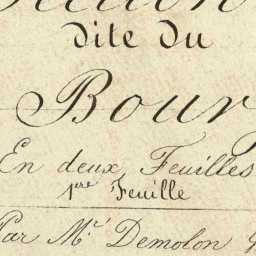 dite du
Bour
En deux Feuilles
1ere Feuille
Par Mr Demolon